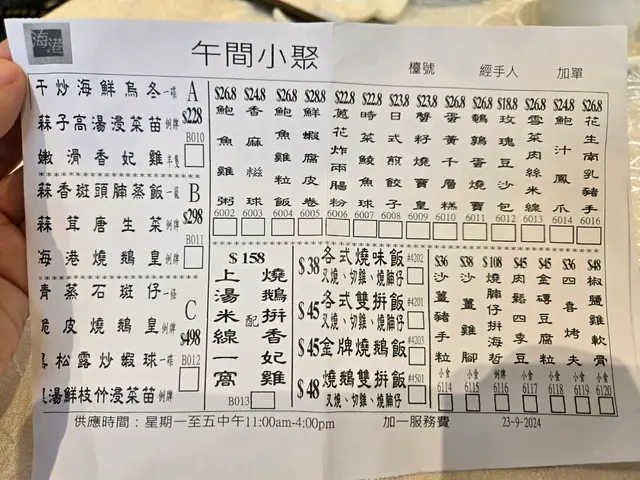 海港
午間小聚
檯號 經手人 加單
干炒海鮮烏冬一碟 A
蒜子高湯浸菜苗例牌 $228
B010
嫩滑香妃雞半隻
蒜香斑頭腩蒸飯一籠 B
蒜茸唐生菜例牌 $298
B011
海港燒鵝皇例牌
青蒸石斑仔一條 C
脆皮燒鵝皇例牌 $498
黑松露炒蝦球一碟 B012
湯鮮枝竹浸菜苗例牌
$26.8 鮑魚雞粥 6002
$24.8 香麻糍球 6003
$26.8 鮑魚雞粒飯 6004
$28.8 鮮蝦腐皮卷 6005
$22.8 蔥花炸兩腸粉 6006
$22.8 時日鯪魚球 6007
$23.8 日式煎餃子 6008
$23.8 蟹籽燒賣 6009
$26.8 蛋黃千層糕 6010
$26.8 鵪鶉蛋燒賣 6011
$18.8 玫瑰豆沙包 6012
$26.8 雪菜肉絲米線 6013
$24.8 鮑汁鳳爪 6014
$26.8 花生南乳豬手 6016
$158
上湯米線一窩
配
燒鵝拼香妃雞
B013
$38 各式燒味飯 #4202
叉燒、切雞、燒腩仔
$45 各式雙拼飯 #4201
叉燒、切雞、燒腩仔
$45 金牌燒鵝飯 #4203
$48 燒鵝雙拼飯 #4501
叉燒、切雞、燒腩仔
$36 沙薑豬手粒 小食 6114
$38 沙薑雞腳 小食 6115
$108 燒腩仔拼海哲 例牌 6116
$45 肉鬆四季豆 小食 6117
$45 金磚豆腐粒 小食 6118
$36 四喜烤夫 小食 6119
$48 椒鹽雞軟骨 小食 6120
供應時間：星期一至五中午11:00am-4:00pm 加一服務費 23-9-2024